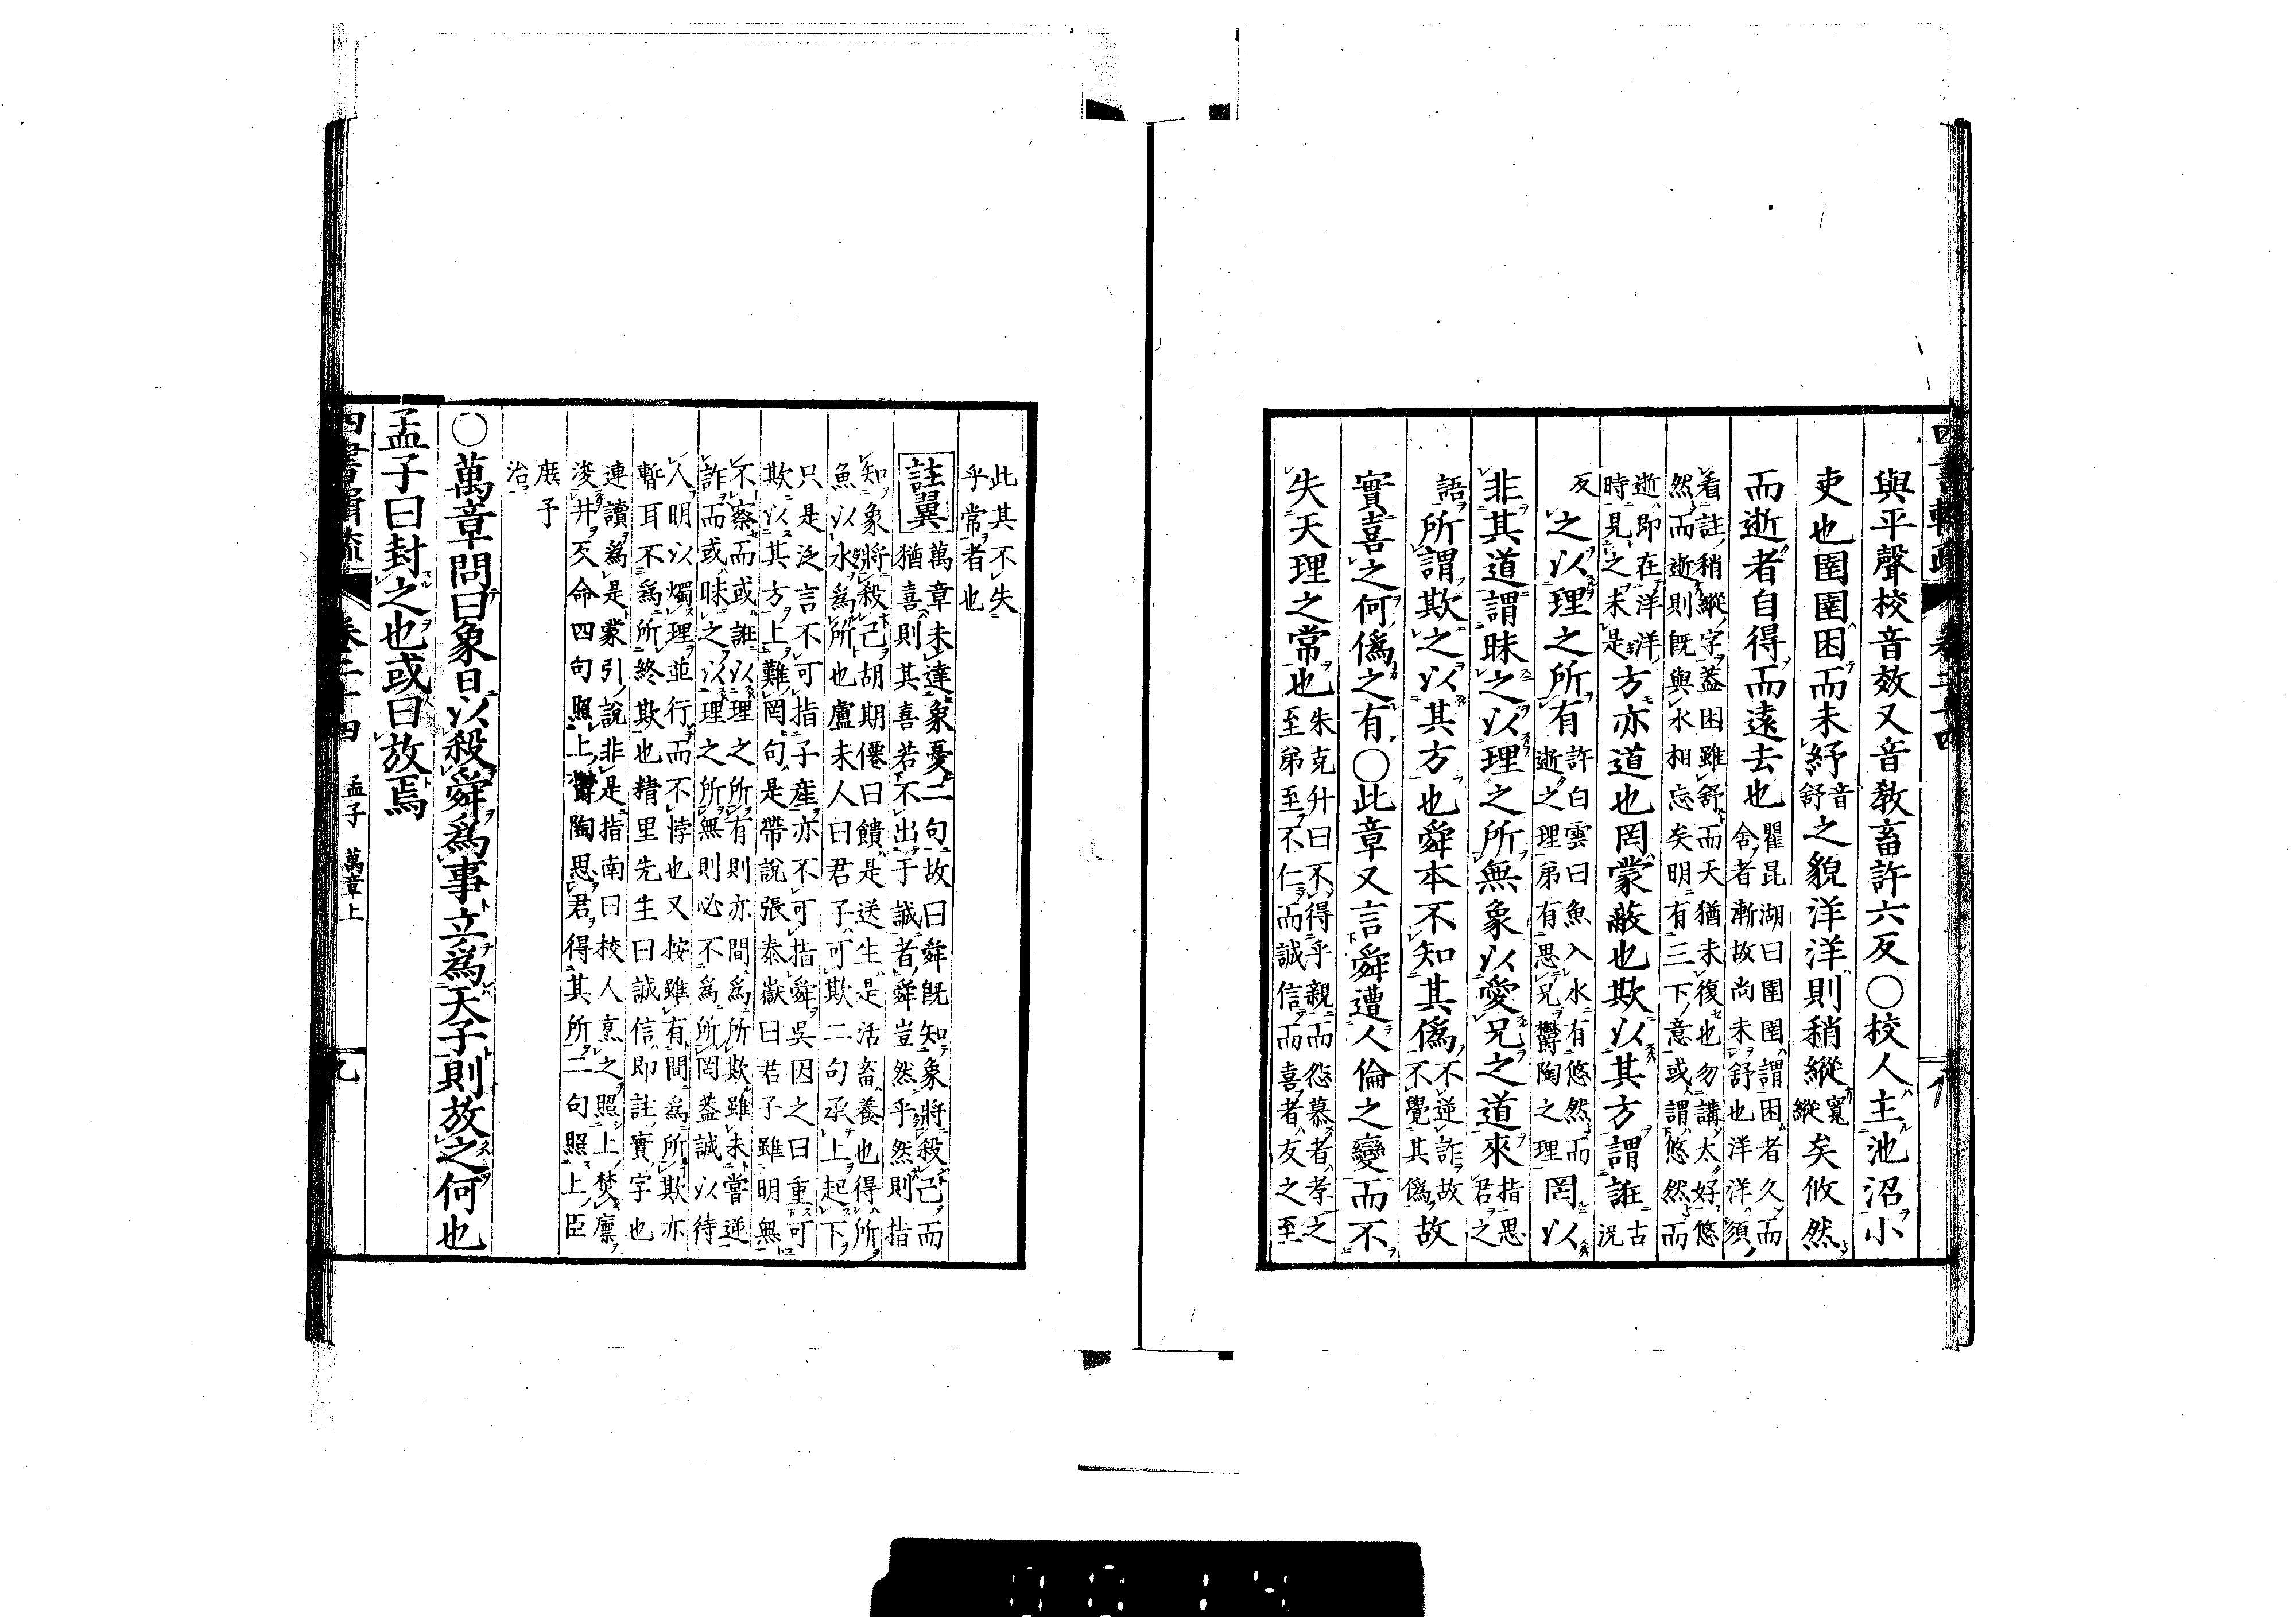 四書輯疏 卷二十四
與平聲校音效又音敎畜許六反○校人主池沼小
吏也圉圉困而未紓音舒之貌洋洋則稍縱寬縱矣攸然
而逝者自得而遠去也瞿昆湖曰圉圉謂困者久而
舍者漸故尚未舒也洋洋須
看註稍縱字葢困雖舒而天猶未復也勿講太好悠
然而逝則既與水相忘矣明有三下意或謂悠然而
逝即在洋洋
時見之未是方亦道也罔蒙蔽也欺以其方謂誑古況
反之以理之所有許白雲曰魚入水有悠然而
逝之理弟有思兄鬱陶之理罔以
非其道謂昧之以理之所無象以愛兄之道來指思
君之
語所謂欺之以其方也舜本不知其僞不逆詐故
不覺其僞故
實喜之何僞之有○此章又言舜遭人倫之變而不
失天理之常也朱克升曰不得乎親而怨慕者孝之
至弟至不仁而誠信而喜者友之至
此其不失
乎常者也
註翼 萬章未達象憂二句故曰舜既知象將殺己而
猶喜則其喜若不出于誠者舜豈然乎然則指
知象將殺己胡期僊曰饋是送生是活畜養也得所
魚以水爲所也盧未人曰君子可欺二句承上起下
只是泛言不可指子產亦不可指舜吳因之曰重可
欺以其方上難罔句是帶說張泰嶽曰君子雖明無
不察而或誑以理之所有則亦間爲所欺雖未嘗逆
詐而或昧之以理之所無則必不爲所罔葢誠以待
人明以燭理並行而不悖也又按雖有間爲所欺亦
暫耳不爲所終欺也精里先生曰誠信即註實字也
連讀爲是蒙引說非是指南曰校人烹之照上焚廩
浚井反命四句照上鬱陶思君得其所二句照上臣
庶予
治
○萬章問曰象日以殺舜爲事立爲天子則放之何也
孟子曰封之也或曰放焉
四書輯疏 卷二十四 孟子 萬章上 九